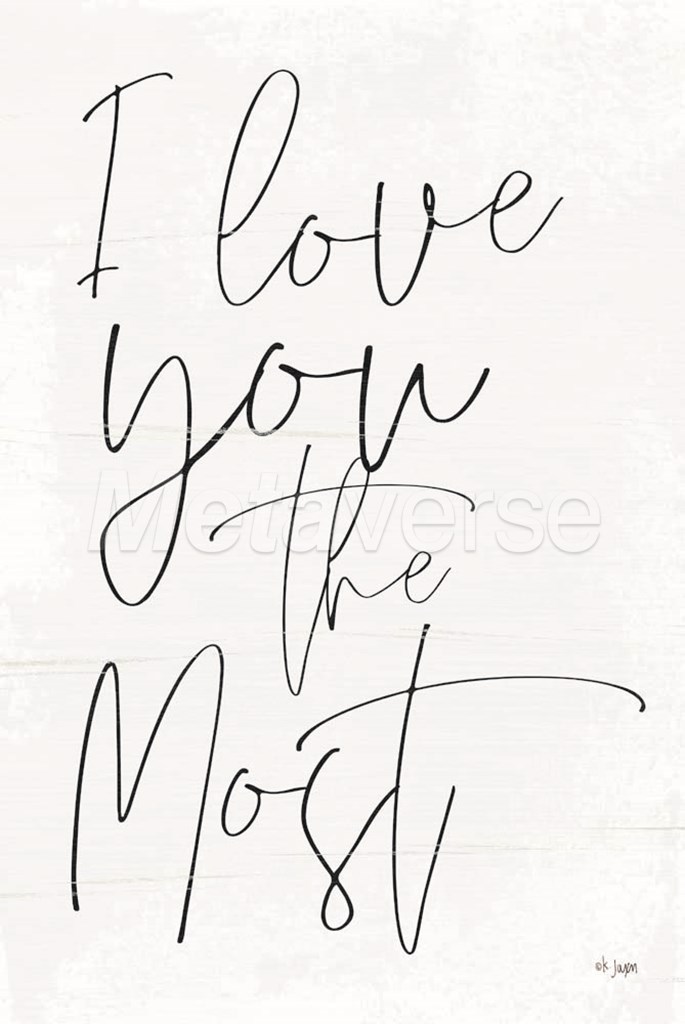 I love
you
Metaverse
the
Most
©K. Jaxn